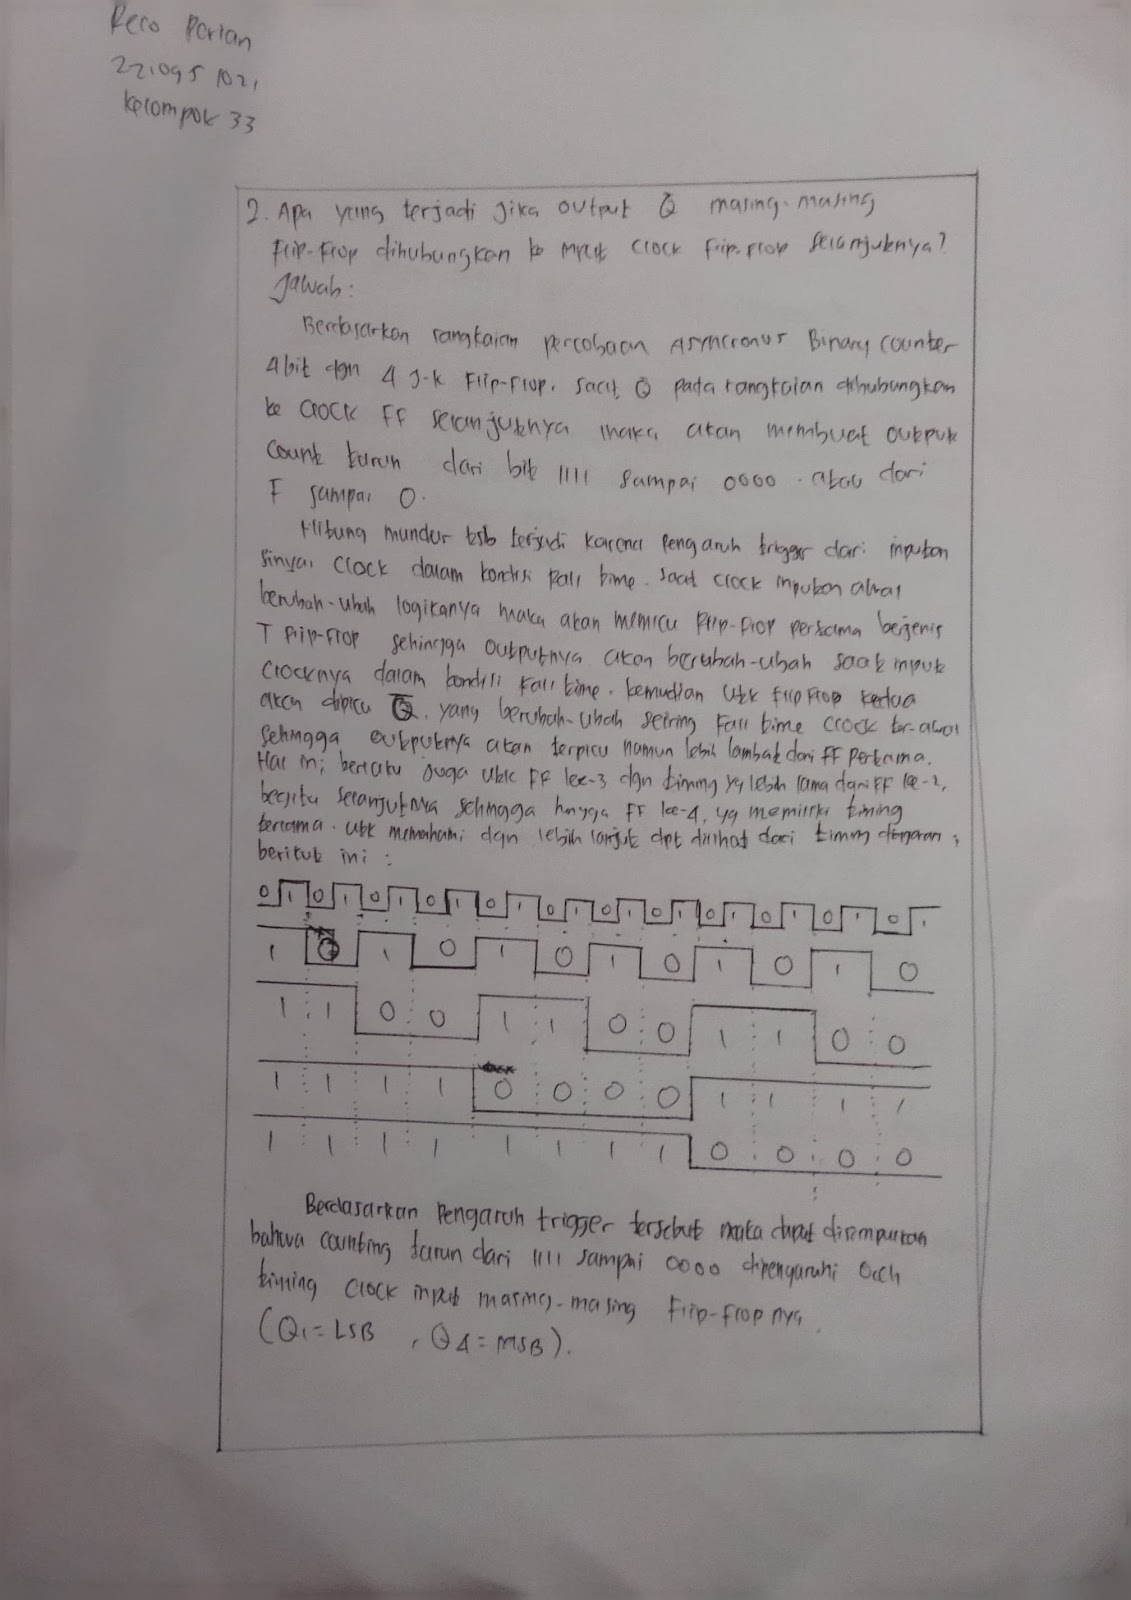 Reco Perian
221095 1021
Kelompok 33
2. Apa yang terjadi jika output Q̅ masing-masing
Flip-Flop dihubungkan ke input Clock Flip-Flop selanjutnya?
Jawab:
Berdasarkan rangkaian percobaan Asyncronus Binary counter
4 bit dgn 4 J-K Flip-Flop. saat Q̅ pada rangkaian dihubungkan
ke Clock FF selanjutnya maka akan membuat output
Count turun dari bit 1111 sampai 0000. atau dari
F sampai 0.
Hitung mundur tsb terjadi karena pengaruh trigger dari inputan
sinyal Clock dalam kondisi Fall time. saat clock inputan awal
berubah-ubah logikanya maka akan memicu Flip-Flop pertama berjenis
T Flip-Flop sehingga outputnya akan berubah-ubah saat input
Clocknya dalam kondisi Fall time. kemudian utk Flip Flop kedua
akan dipicu Q̅, yang berubah-ubah seiring Fall time Clock ter-awal
sehingga outputnya akan terpicu namun lebih lambat dari FF pertama.
Hal ini berlaku juga utk FF ke-3 dgn timing yg lebih lama dari FF ke-2,
begitu selanjutnya sehingga hingga FF ke-4, yg memiliki timing
terlama. utk memahami dgn lebih lanjut dpt dilihat dari timing diagram
berikut ini :
0 1 0 1 0 1 0 1 0 1 0 1 0 1 0 1 0 1 0 1 0 1 0 1
1 0 1 0 1 0 1 0 1 0 1 0
1 1 0 0 1 1 0 0 1 1 0 0
1 1 1 1 0 0 0 0 1 1 1 1
1 1 1 1 1 1 1 1 0 0 0 0
Berdasarkan Pengaruh trigger tersebut maka dapat disimpulkan
bahwa counting turun dari 1111 sampai 0000 dipengaruhi Oleh
timing Clock input masing-masing Flip-Flop nya.
(Q1 = LSB , Q4 = MSB).